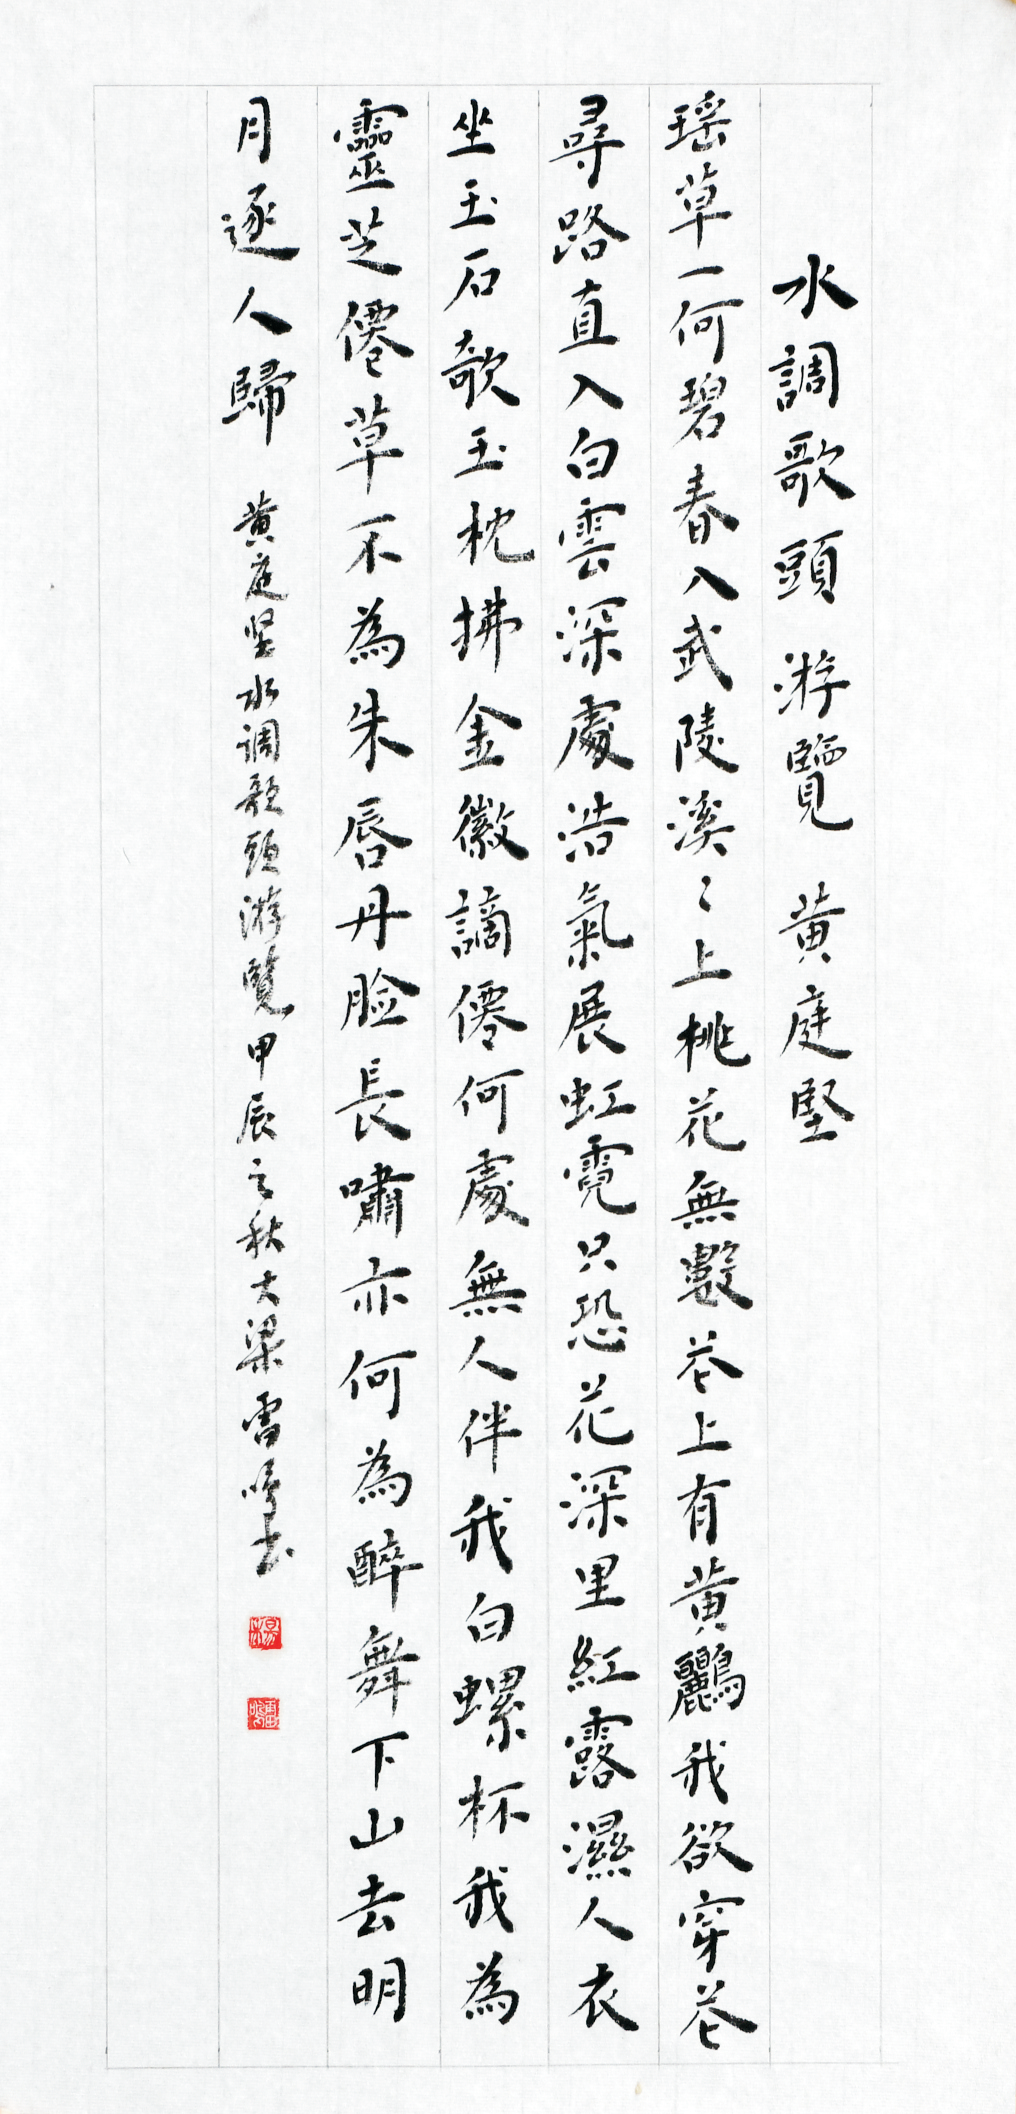 水調歌頭 游覽 黄庭堅
瑶草一何碧春入武陵溪〻上桃花無數花上有黄鸝我欲穿花
尋路直入白雲深處浩氣展虹霓只恐花深里紅露濕人衣
坐玉石欹玉枕拂金徽謫僊何處無人伴我白螺杯我為
靈芝僊草不為朱唇丹脸長嘯亦何為醉舞下山去明
月逐人歸 黄庭坚水调歌頭游覽甲辰之秋大梁雷鸣书